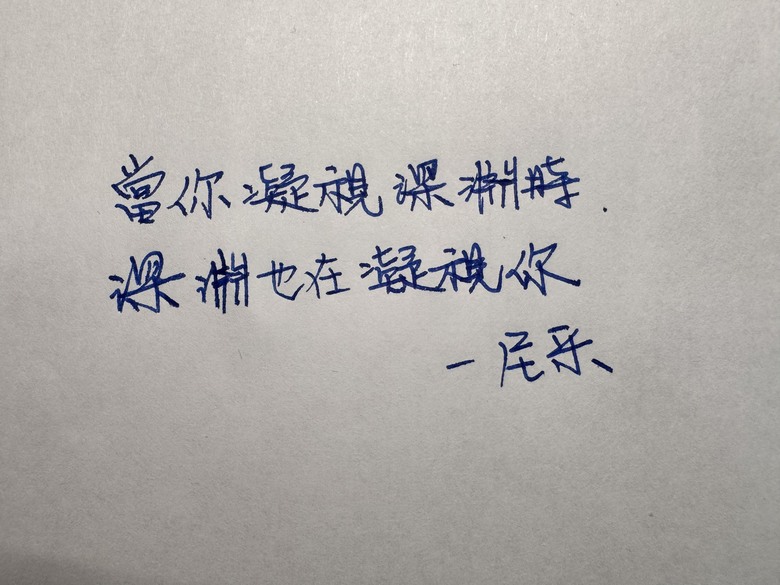 當你凝視深淵時.
深淵也在凝視你
一尼采